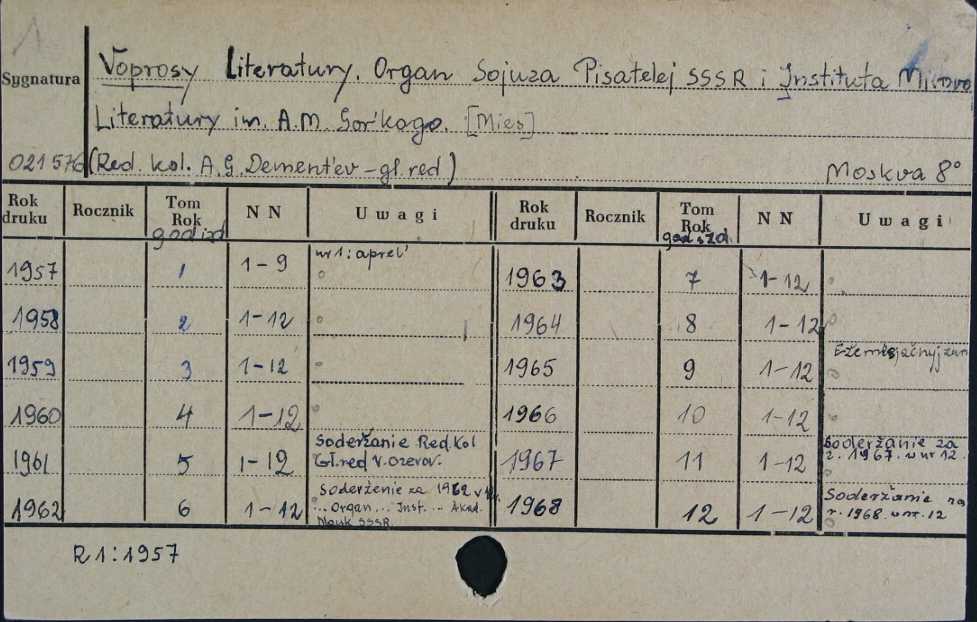 Voprosy Literatury. Organ Sojuza Pisatelej SSSR i Instituta Mirovo
Sygnatura
Literatury im. A.M. Gor'kogo. [Mies]
021576 (Red. kol. A.G. Dement'ev - gł. red) Moskva 8°
Rok druku Rocznik Tom Rok god izd NN Uwagi Rok druku Rocznik Tom Rok god izd. NN Uwagi
1957 1 1-9 nr 1: aprel' 1963 7 1-12
1958 2 1-12 1964 8 1-12
1959 3 1-12 1965 9 1-12 Ežemesjačnyj žurn
1960 4 1-12 1966 10 1-12
1961 5 1-12 Soderžanie Red. Kol Gł. red V. Ozerov. 1967 11 1-12 Soderžanie za r. 1967. w nr 12.
1962 6 1-12 Soderženie za 1962 v ... Organ ... Inst. ... Akad. Nauk SSSR 1968 12 1-12 Soderžanie za r. 1968. w nr. 12
R 1:1957